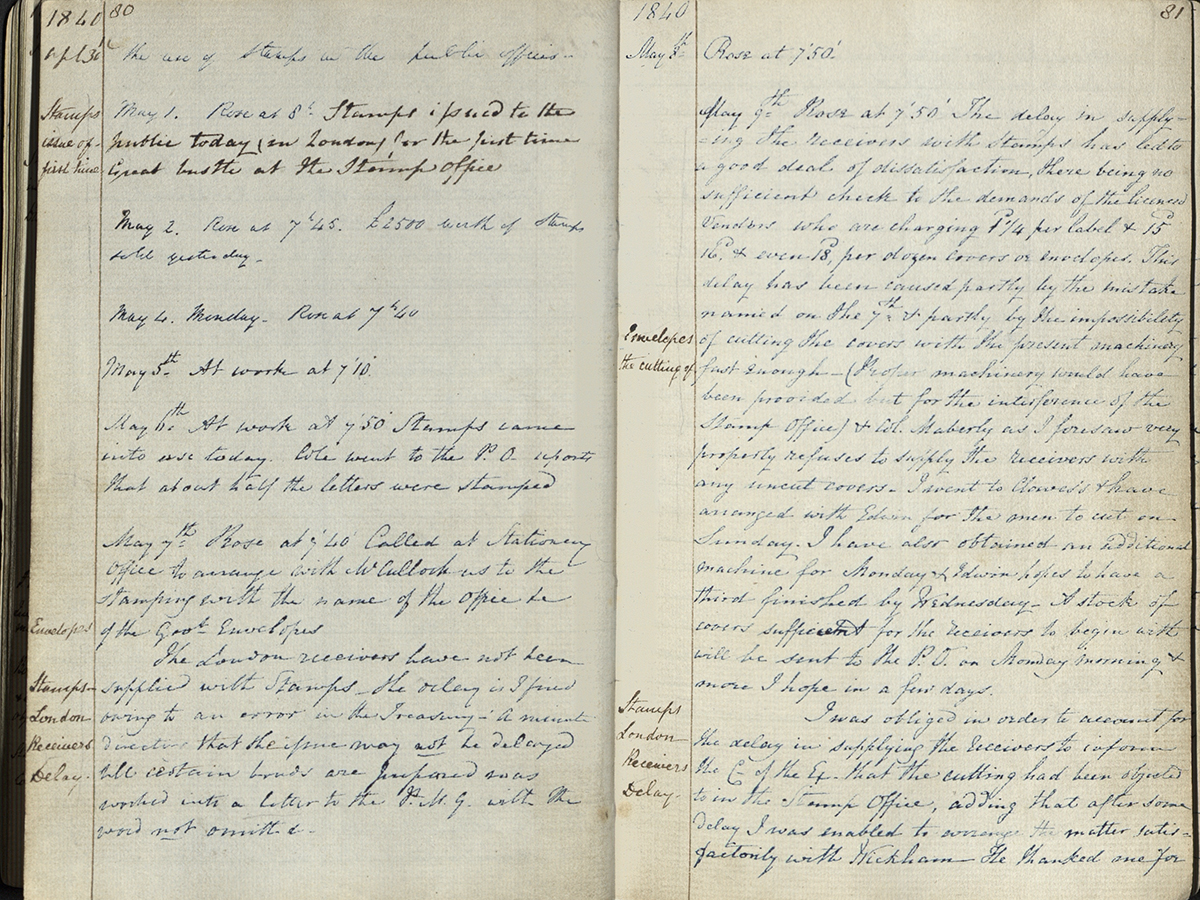 1840 80
Apl 30 the use of Stamps in the public offices.
Stamps
issue of
first time
May 1. Rose at 8h Stamps issued to the
public today (in London) for the first time
Great bustle at the Stamp Office
May 2. Rose at 7h 45. £2500 worth of Stamps
sold yesterday.
May 4. Monday. Rose at 7h 40
May 5th At work at 7'10.
May 6th At work at 7'50 Stamps came
into use today. Cole went to the P.O. reports
that about half the letters were stamped
May 7th Rose at 7'40 Called at Stationery
Office to arrange with McCulloch as to the
stamping with the name of the Office &c
Envelopes
of the Govt Envelopes
The London receivers have not been
Stamps
London
Receivers
Delay.
supplied with Stamps the delay is I find
owing to an error in the Treasury - A minute
directing that the issue may not be delayed
till certain bonds are prepared was
worked into a letter to the P.M.G. with the
word not omitted.
1840 81
May 8th Rose at 7'50'
May 9th Rose at 7'50' The delay in supply-
-ing the receivers with Stamps has led to
a good deal of dissatisfaction, there being no
sufficient check to the demands of the licensed
Vendors who are charging 1d 1/4 per label & 15d
16d, & even 18d, per dozen covers or envelopes. This
delay has been caused partly by the mistake
named on the 7th & partly by the impossibility
Envelopes
the cutting of
of cutting the covers with the present machinery
fast enough - (Proper machinery would have
been provided but for the interference of the
Stamp Office) & Col. Maberly as I foresaw very
properly refuses to supply the receivers with
any uncut covers. I went to Clowes's & have
arranged with Edwin for the men to cut on
Sunday. I have also obtained an additional
machine for Monday & Edwin hopes to have a
third finished by Wednesday - A stock of
covers sufficient for the receivers to begin with
will be sent to the P.O. on Monday morning &
more I hope in a few days.
Stamps
London
Receivers
Delay.
I was obliged in order to account for
the delay in supplying the receivers to inform
the C. of the Ex. that the cutting had been objected
to in the Stamp Office, adding that after some
delay I was enabled to arrange the matter satis-
factorily with Wickham He thanked me for